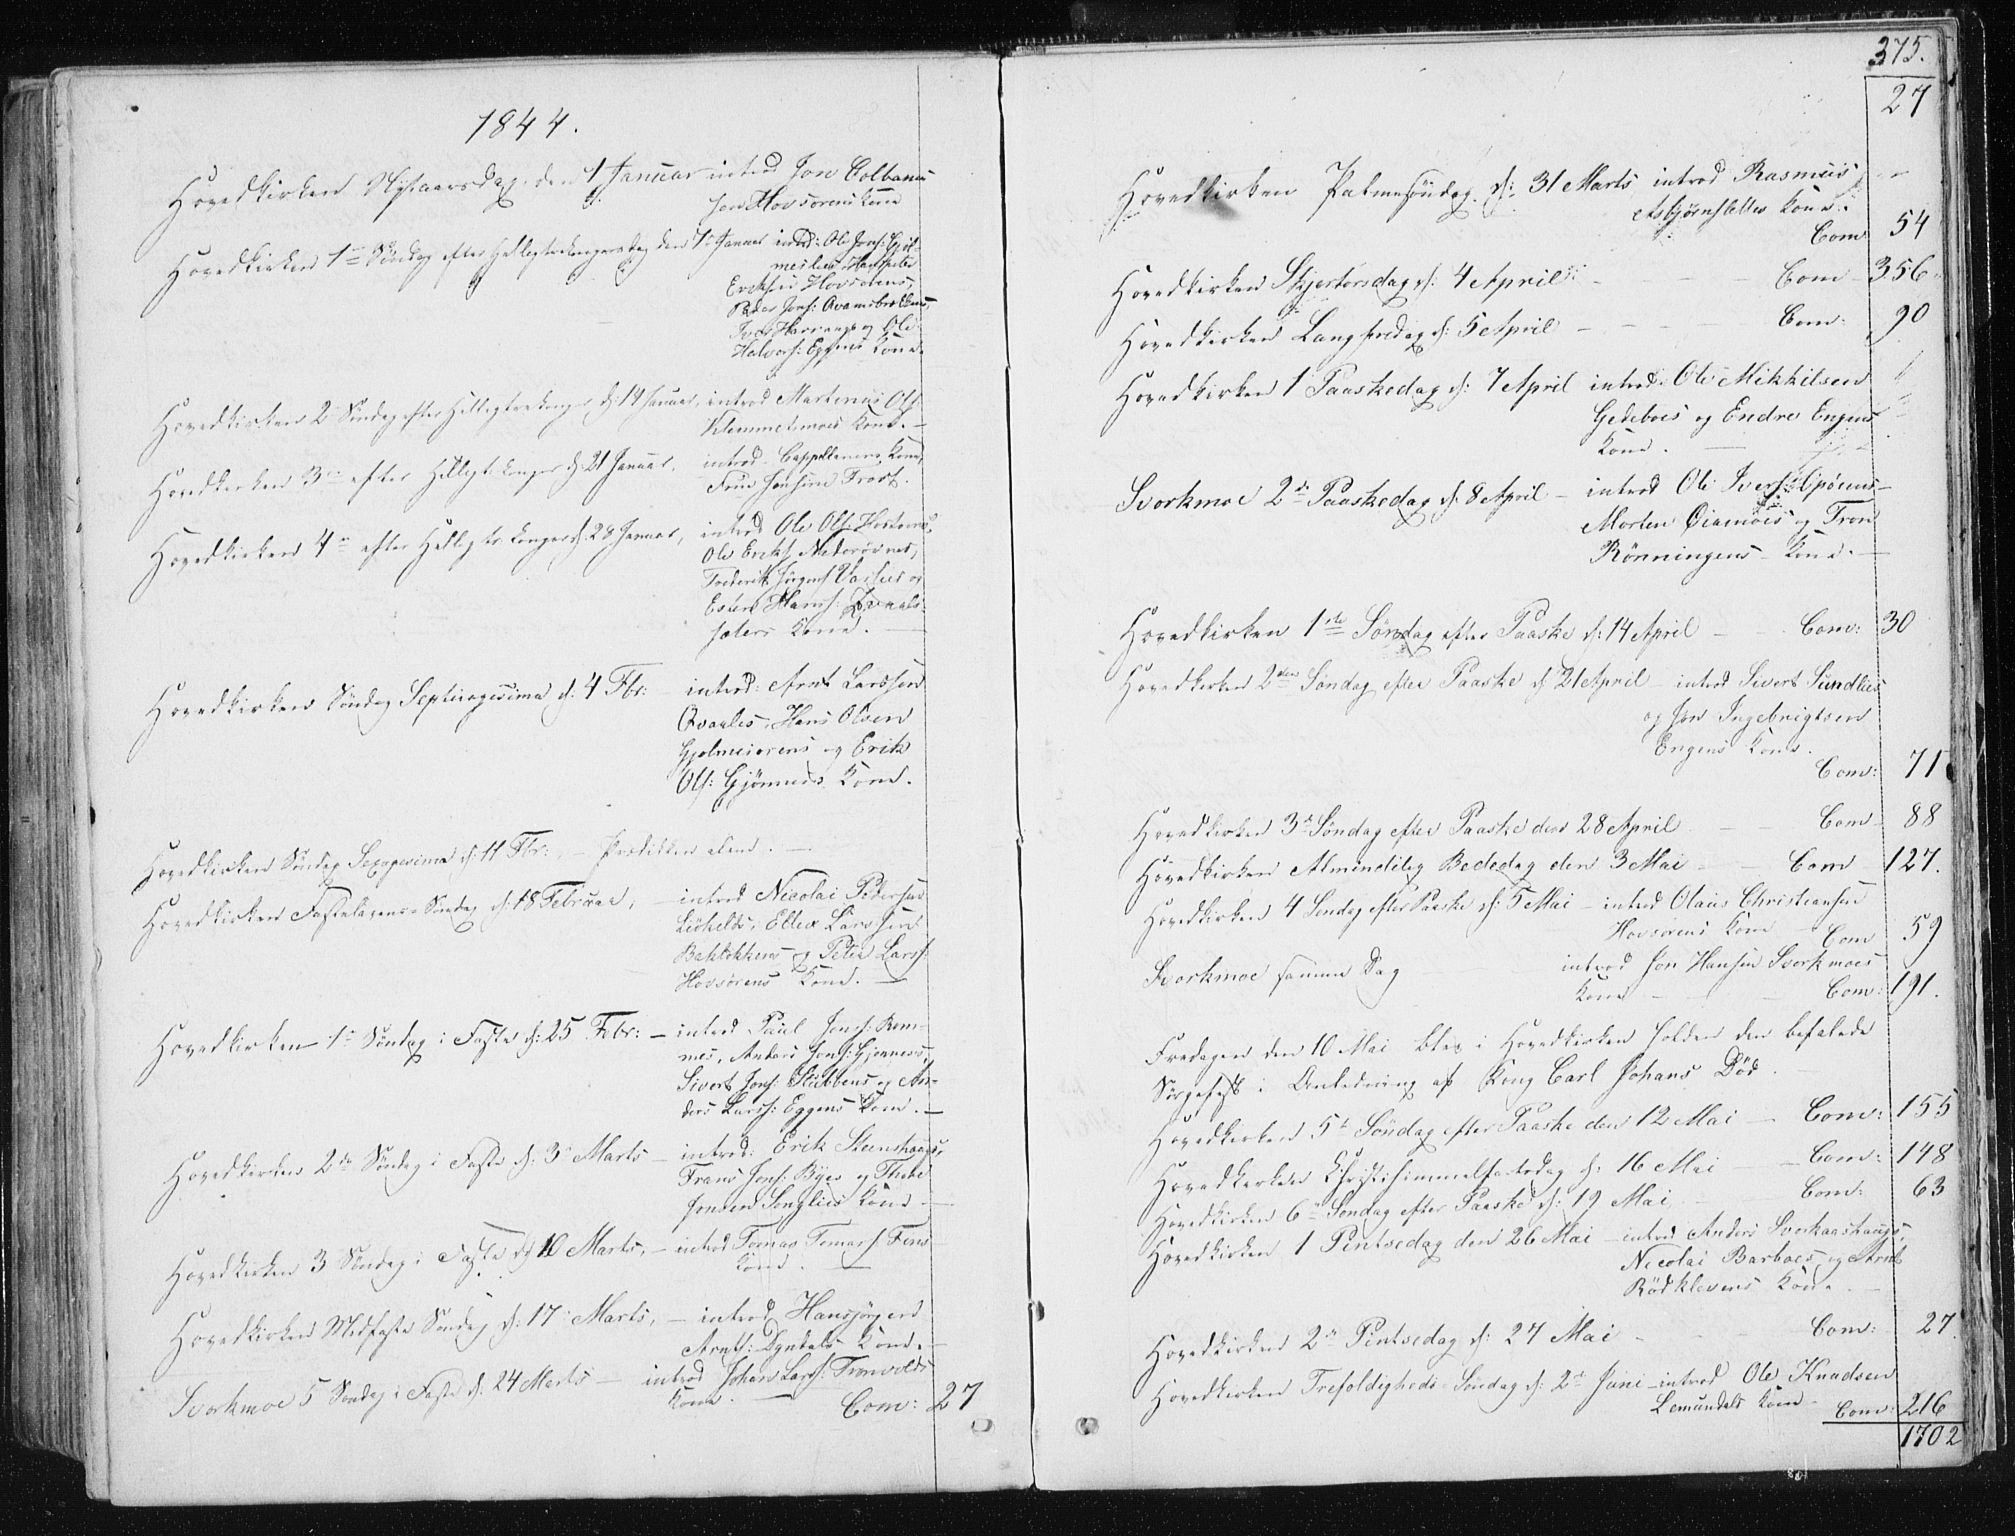 1844.
Hovedkirken Nytaarsdag den 1 Januar introd Jon Colbans
Jon Hovsørens Kone
Hovedkirken 1 Søndag efter Helligtrekonger den 7 Januar introd: Ole Jons:
Hanspeter
Eriksen Hovsørens,
Peder Jons: Qvamsbrekkens,
Iver Harrangs og Ole
Halvors: Eggens Kone.
Hovedkirken 2 Søndag efter Helligtrekonger d: 14 Januar, introd Martinus Ols:
Klemmetsmoes Kone. –
Hovedkirken 3 efter Helligtrekonger d: 21 Januar, introd. Cappellanens Kone,
Frue Trost.
Hovedkirken 4 efter Helligtrekonger d: 28 Januar, introd Ole Ols:
Ole Eriks:
Frederik Jörgens: og
Hans:
Kone. –
Hovedkirken Søndag Septuagesima d: 4 Fbr: introd: Arnt Larssen
Qvaales, Hans Olsen
Gjølmeiørens og Erik
Ols: Gjønnes Kone.
Hovedkirken Søndag Sexagesima d: 11 Fbr: – Prædiken alene. –
Hovedkirken Fastelavens-Søndag d: 18 Februar, – introd Nicolai Pedersen
Ellev Larssen
og Peter Larss:
Hovsørens Kone. –
Hovedkirken 1 Søndag i Faste d: 25 Febr: – introd Paul Jons: Rom-
mes, Anders Jons: Gjønnes,
Sivert Jons: Stubbens og An-
ders Larss: Eggens Kone. –
Hovedkirken 2 Søndag i Faste d: 3 Marts – introd: Erik Steenshaugs,
Frans Jons: Byes og
Jonsen Songlies Kone –
Hovedkirken 3 Søndag i Faste d: 10 Marts, – introd Tomas Tomass:
Kone. –
Hovedkirken Midfaste Søndag d: 17 Marts, – introd Hansjörgen
Arnts: Dyrdals Kone. –
Svorkmoe 5 Søndag i Faste d: 24 Marts – introd Johan Lars: Tronvolds
Kone. – Com: 27
375.
27
Hovedkirken Palmesöndag d: 31 Marts, introd Rasmus
Asbjørnslettes Kone.
Com 54
Hovedkirken Skjertorsdag d: 4 April – – – Com – 356
Hovedkirken Langfredag d: 5 April – – – – Com: 90
Hovedkirken 1 Paaskedag d: 7 April introd: Ole Mikkelsen
Gedeboes og Endre Engens
Kone. –
Svorkmoe 2 Paaskedag d: 8 April – introd Ole Ivers:
Morten Øiamoes og Tron
Rönningens Kone. –
Hovedkirken 1ste Søndag efter Paaske d: 14 April – – Com: 30
Hovedkirken 2den Søndag efter Paaske d: 21 April – introd Sivert Sundlies
og Jon Ingebrigtsen
Engens Kone.
Com: 71
Hovedkirken 3 Søndag efter Paaske den 28 April – Com 88
Hovedkirken Almindelig Bededag den 3 Mai – – Com – 127.
Hovedkirken 4 Søndag efter Paaske d: 5 Mai – introd Olaus Christiansen
Hovsørens Kone – Com 59
Svorkmoe samme Dag introd Jon Hansen Svorkmoes
Kone – – Com: 191.
Fredagen den 10 Mai blev i Hovedkirken holden den befalede
Sørgefest i Anledning af Kong Carl Johans Død. –
Hovedkirken 5 Søndag efter Paaske den 12 Mai – Com: 155
Hovedkirken Christihimmelfartsdag d: 16 Mai – – Com: 148
Hovedkirken 6 Søndag efter Paaske d: 19 Mai, – Com: 63
Hovedkirken 1 Pintsedag den 26 Mai – introd Anders Svorkaashaugs,
Nicolai Barboes og Arnt
Rödklevens Kone. –
Hovedkirken 2 Pintsedag d: 27 Mai – – Com: 27
Hovedkirken Trefoldigheds Søndag d: 2 Juni – introd Ole Knudsen
Lomundals Kone – Com: 216
1702